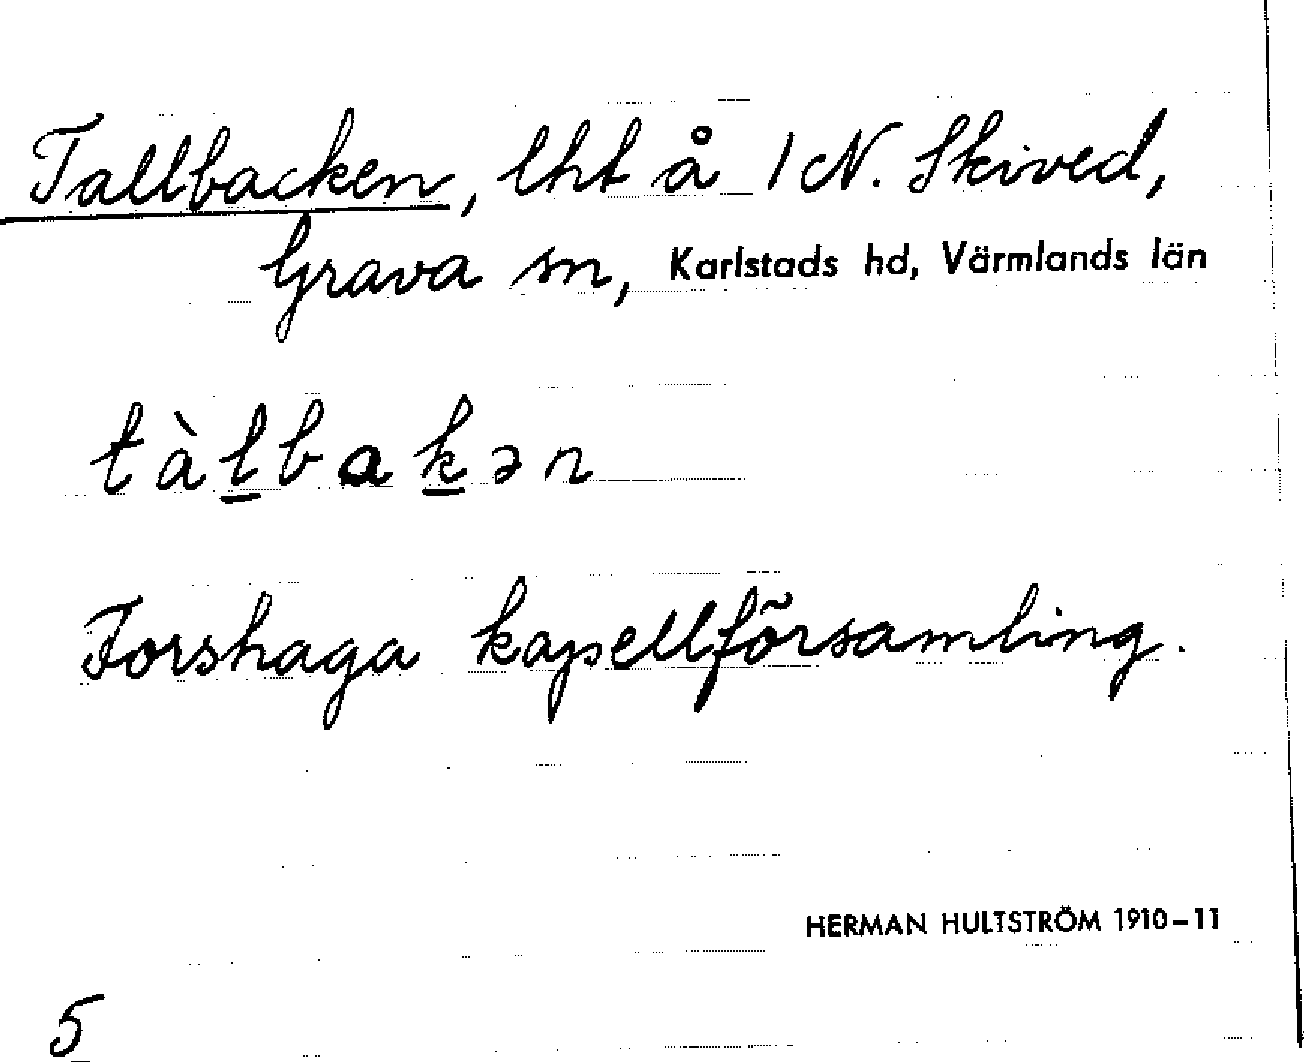 Tallbacken, lht å 1 N. Skived,
Grava sn, Karlstads hd, Värmlands län
tàl̲bak̲ən
Forshaga kapellförsamling.
HERMAN HULTSTRÖM 1910–11
5